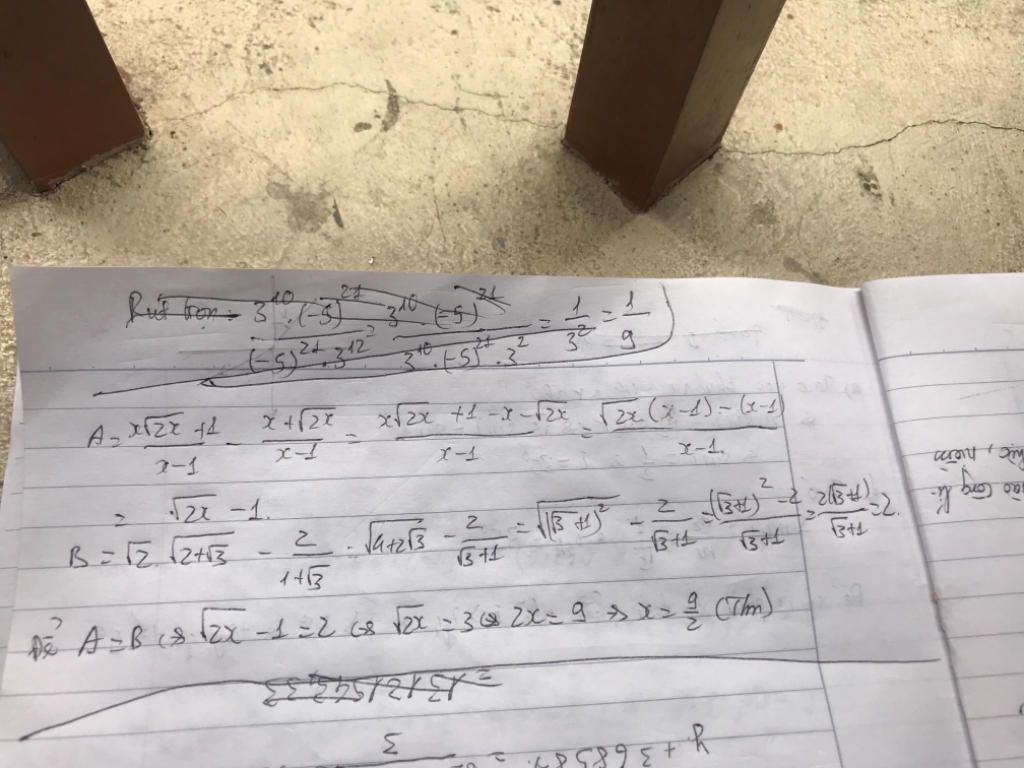 Rút gọn: 3^10 · (-5)^21 / (-5)^21 · 3^12 = 3^10 · (-5)^21 / 3^10 · (-5)^21 · 3^2 = 1/3^2 = 1/9
A = x√2x + 1 / x-1 - x + √2x / x-1 = x√2x + 1 - x - √2x / x-1 = √2x (x-1) - (x-1) / x-1
= √2x - 1.
B = √2. √2+√3 - 2 / 1+√3 = √4+2√3 - 2 / √3+1 = √(√3+1)^2 - 2 / √3+1 = (√3+1)^2 - 2 / √3+1 = 2(√3+1) / √3+1 = 2.
Để A = B ⇔ √2x - 1 = 2 ⇔ √2x = 3 ⇔ 2x = 9 ⇔ x = 9/2 (T/m)